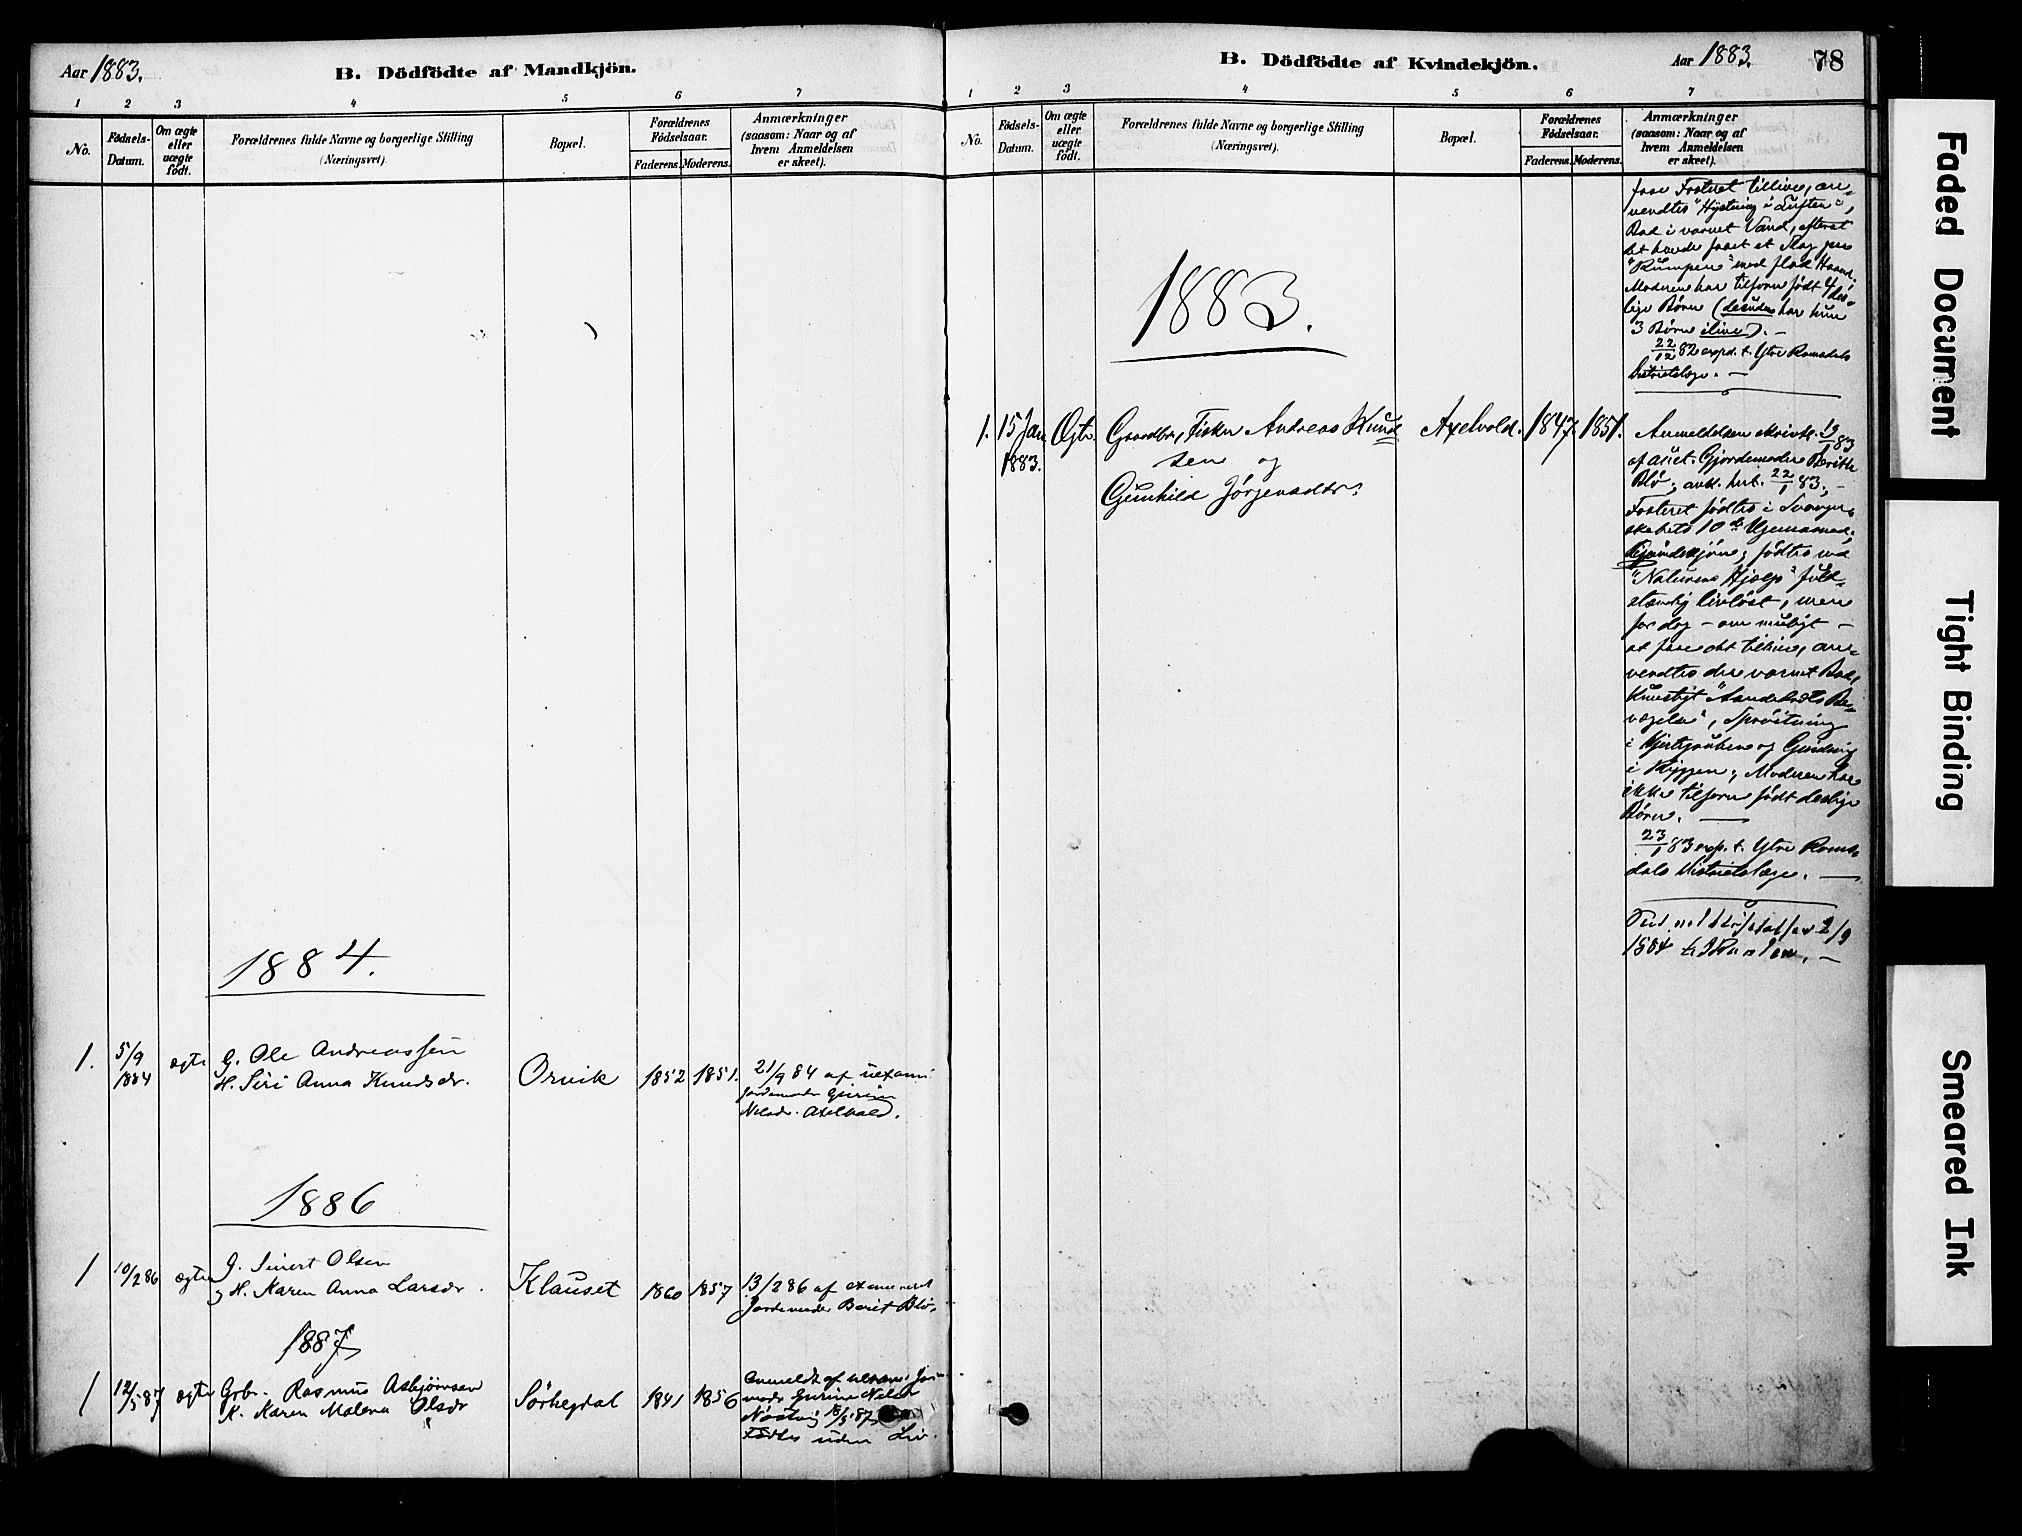 Aar 1883.
B. Dödfödte af Mandkjön.
1 2 3 4 5 6 7
No.
Födsels-
Datum.
Om ægte
eller
uægte
födt.
Forældrenes fulde Navne og borgerlige Stilling
(Næringsvei).
Bopæl.
Forældrenes
Födselsaar.
Faderens. Moderens.
Anmærkninger
(saasom: Naar og af
hvem Anmeldelsen
er skeet).
1884.
1. 5/9 1884 ægte G. Ole Andreassen
H. Siri Anna Knudsdr. Orvik 1852 1851. 21/9 84 af uexam.
Jordemoder Gurine
Nelsdr. Axelvold.
1886
1 10/2 86 ægte G. Sivert Olsen
og H. Karen Anna Larsdr. Klauset 1860 1857 13/2 86 af examineret
Jordemoder Berit Blø.
1887
1 12/5 87 ægte Gbr. Rasmus Asbjørnsen
K. Karen Malena Olsdr Sørhegdal 1841 1856 Anmeldt af uexam. Jor-
modr Gurine Nelsdr
Nøstvig 18/5 87
Fødtes uden Liv.
B. Dödfödte af Kvindekjön.
Aar 1883.
78
1 2 3 4 5 6 7
No.
Födsels-
Datum.
Om ægte
eller
uægte
födt.
Forældrenes fulde Navne og borgerlige Stilling
(Næringsvei).
Bopæl.
Forældrenes
Födselsaar.
Faderens. Moderens.
Anmærkninger
(saasom: Naar og af
hvem Anmeldelsen
er skeet).
faae Fosteret tillive, an-
vendtes "Hystning i Luften",
Bad i varmt Vand, efterat
det havde faaet et Slag paa
"Rumpen" med flad Haand.
Moderen har tilforn født 4 des-
lige Børn (desuden har hun
3 Børn ilive). —
22/12 82 exped. t. Ytre Romsdals
Distriktslæge. —
1883.
1. 15 Jan 1883. Ægte. Gaardbr, Fisker Andreas Knud
sen og
Gunhild Jørgensdtr. Axelvold. 1847. 1851.
Anmeldelsen skriftl. 19/1 83
af exam. Gjordemoder Berithe
Blø; antk. hert. 22/1 83; —
Fosteret fødtes i Svanger-
skabets 10de Ugemaaned,
Qvindekjøn; fødtes ved
"Naturens Hjælp" fuld-
stændig livløst, men
for dog — om muligt —
at faae det tillive, an-
vendtes der varmt Bad,
Kunstigt "Aandedræts Be-
vægelse", Sprøitning
i Hjertegruben og Gnidning
i Ryggen; Moderen har
ikke tilforn født deslige
Børn. —
23/1 83 exp. t. Ytre Roms-
dals Distriktslæge. —
2/9
1884
Faded Document
Tight Binding
Smeared Ink